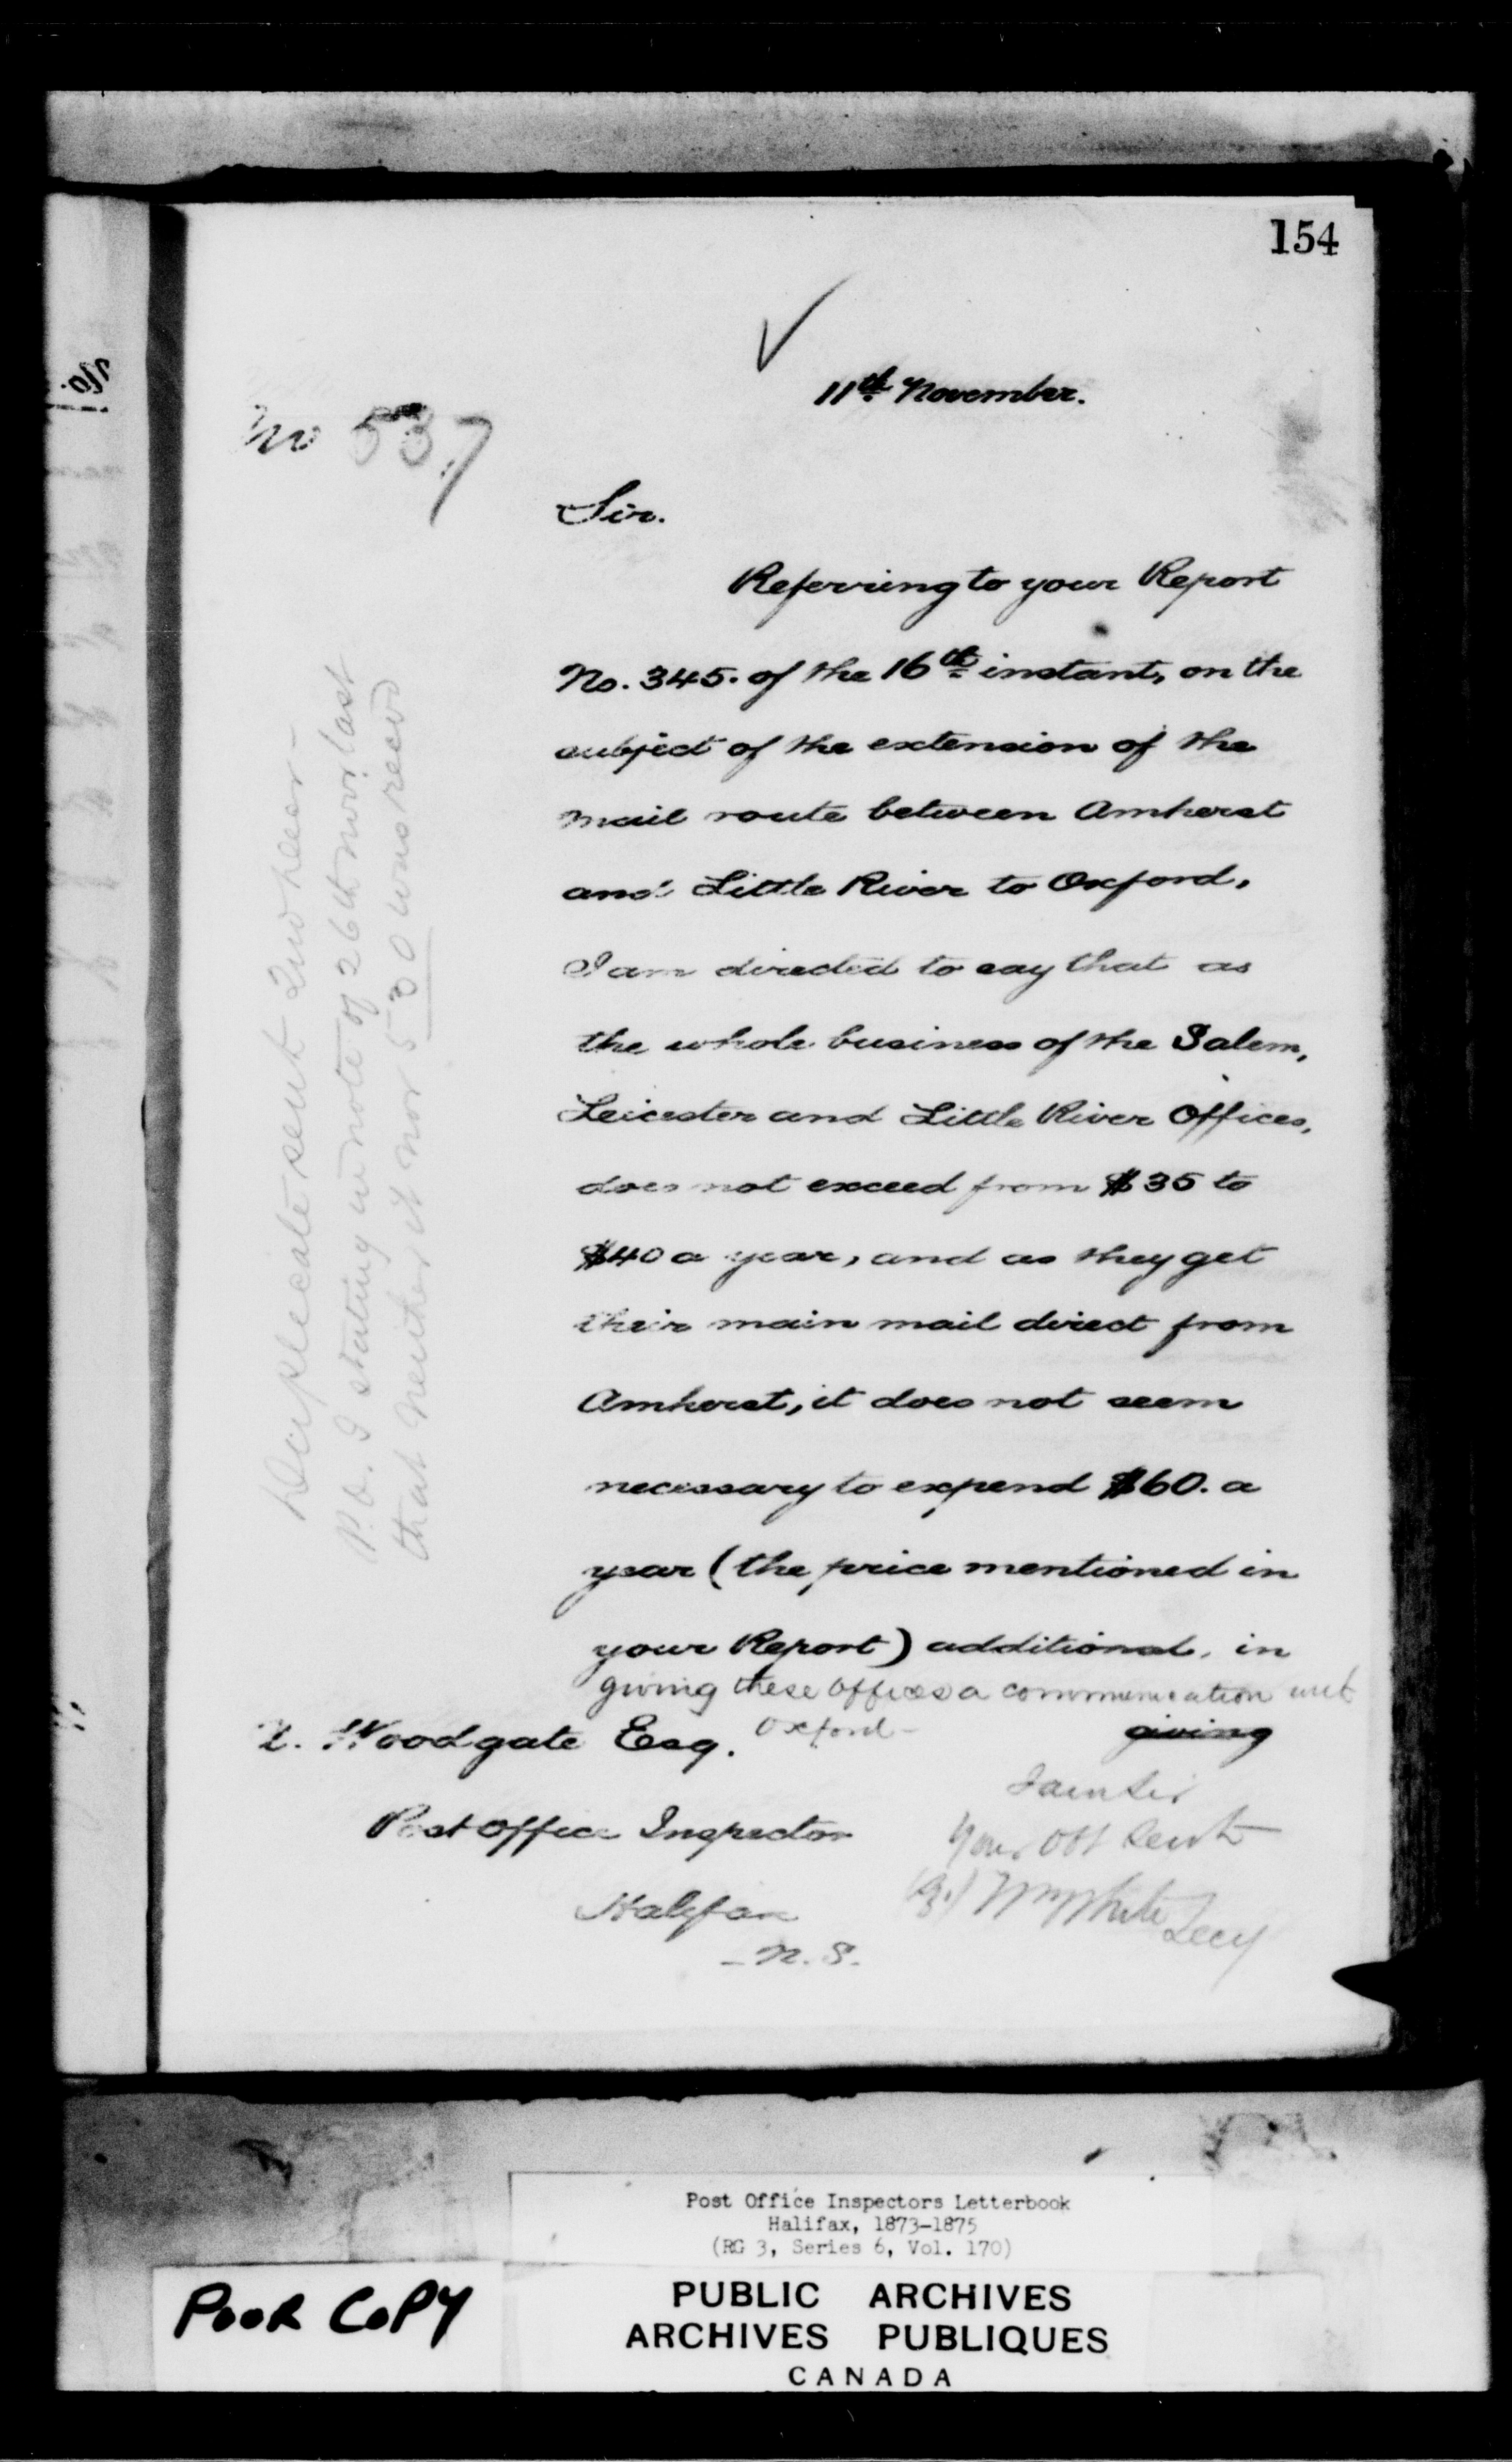 154
11th November.
No 537
Sir.
Referring to your Report
No. 345. of the 16th instant, on the
subject of the extension of the
mail route between Amherst
and Little River to Oxford,
I am directed to say that as
the whole business of the Salem,
Leicester and Little River Offices,
does not exceed from $35 to
$40 a year, and as they get
their main mail direct from
Amherst, it does not seem
necessary to expend $60. a
year (the price mentioned in
your Report) additional, in
giving these offices a communication with
Oxford-
giving
I am Sir
Your Obt Servt
Wm White
Secy
Woodgate Esq.
Post Office Inspector
Halifax
- N. S.
Duplicate sent 2nd
P.O. I stating in note of 26th Novr. last
that neither it nor 530 was recvd
No.
Post Office Inspectors Letterbook
Halifax, 1873-1875
(RG 3, Series 6, Vol. 170)
POOR COPY
PUBLIC ARCHIVES
ARCHIVES PUBLIQUES
CANADA